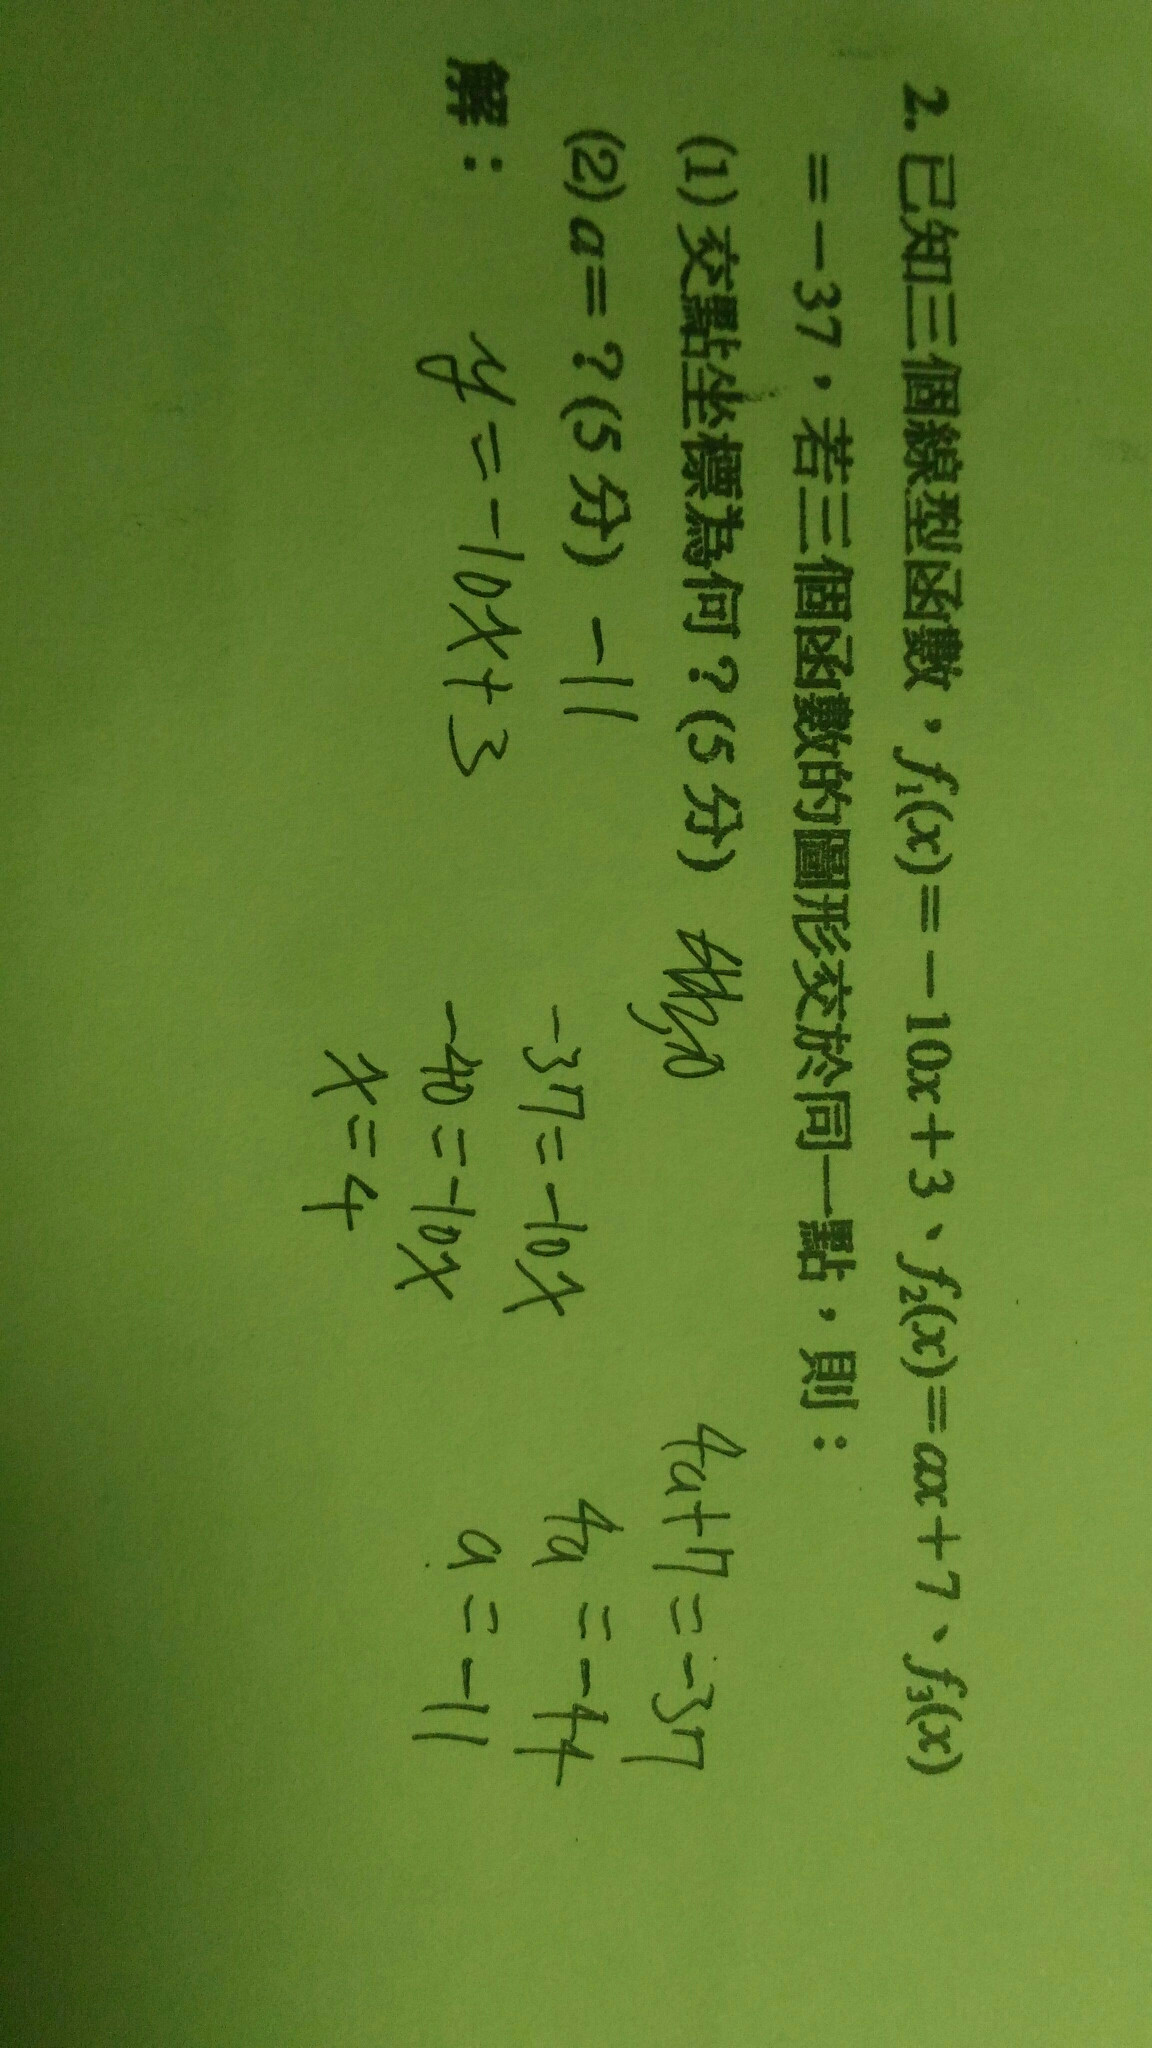 2. 已知三個線型函數，f₁(x)＝－10x＋3、f₂(x)＝ax＋7、f₃(x)
＝－37，若三個函數的圖形交於同一點，則：
(1) 交點坐標為何？(5 分)
(2) a＝？(5 分) -11
解：
y=-10x+3
-37=-10x
-40=-10x
x=4
4a+7=-37
4a=-44
a=-11